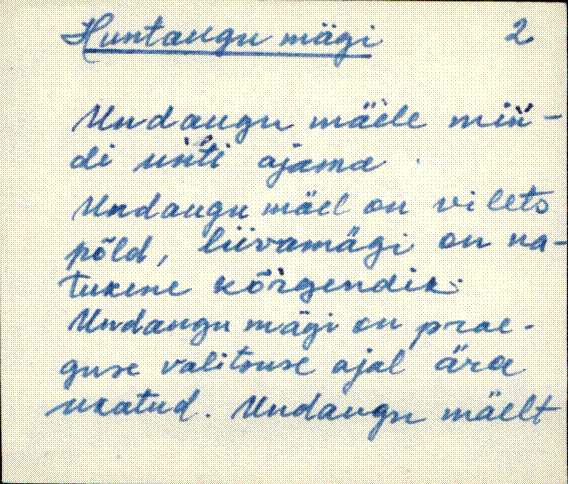 Huntaugu mägi 2
Undaugu mäele miń-
di uńti ajama.
Undaugu mäel on vilets
põld, liivamägi on na-
tukene kõrgendik.
Undaugu mägi on prae-
guse valitsuse ajal ära
ukatud. Undaugu mäelt